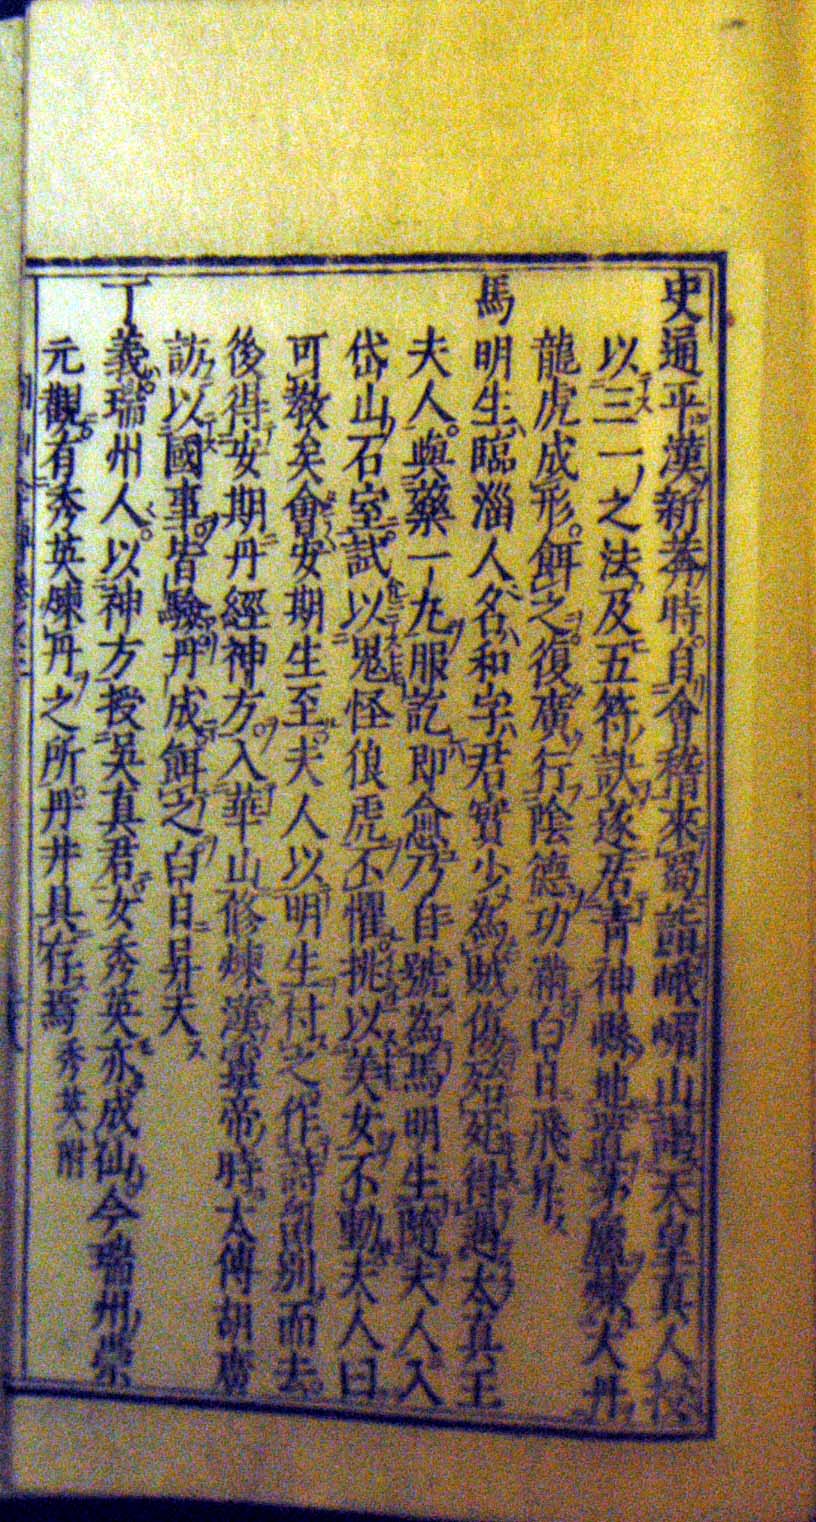 史通平漢新莽時自會稽來蜀詣峨嵋山謁天皇真人授
以三一之法及五符訣遂居青神縣地置茅廬煉大丹
龍虎成形餌之復廣行陰德功滿白日飛昇
馬明生臨淄人名和字君寳少為賊傷殆死得遇太真王
夫人與藥一丸服訖即愈乃自號為馬明生隨夫人入
岱山石室試以鬼怪狼虎不懼挑以美女不動夫人曰
可教矣會安期生至夫人以明生付之作詩留別而去
後得安期丹經神方入華山修煉漢靈帝時太傅胡廣
訪以國事皆驗丹成餌之白日昇天
丁義瑞州人以神方授吳真君女秀英亦成仙今瑞州崇
元觀有秀英煉丹之所丹井具存焉秀英附